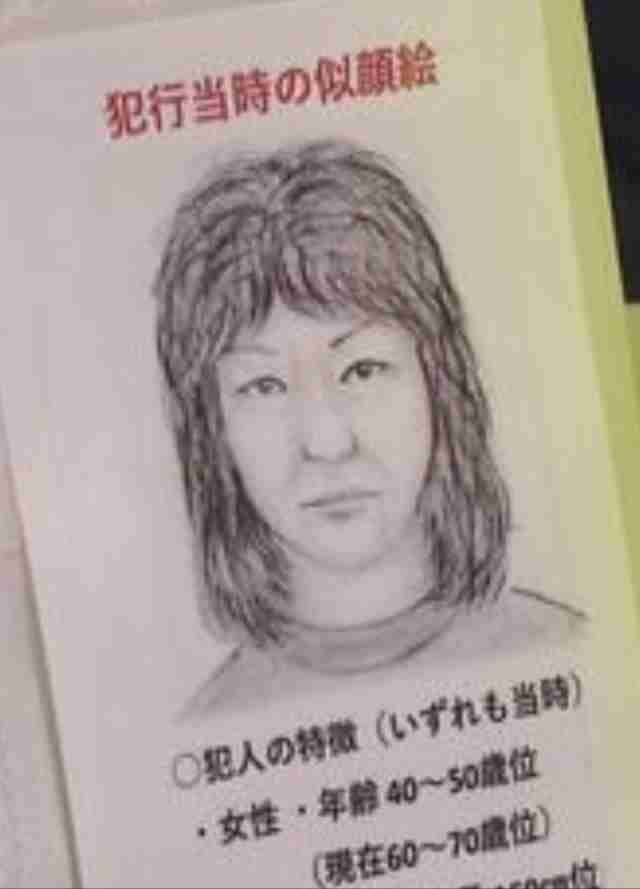 犯行当時の似顔絵
○犯人の特徴（いずれも当時）
・女性・年齢40～50歳位
（現在60～70歳位）
160cm位